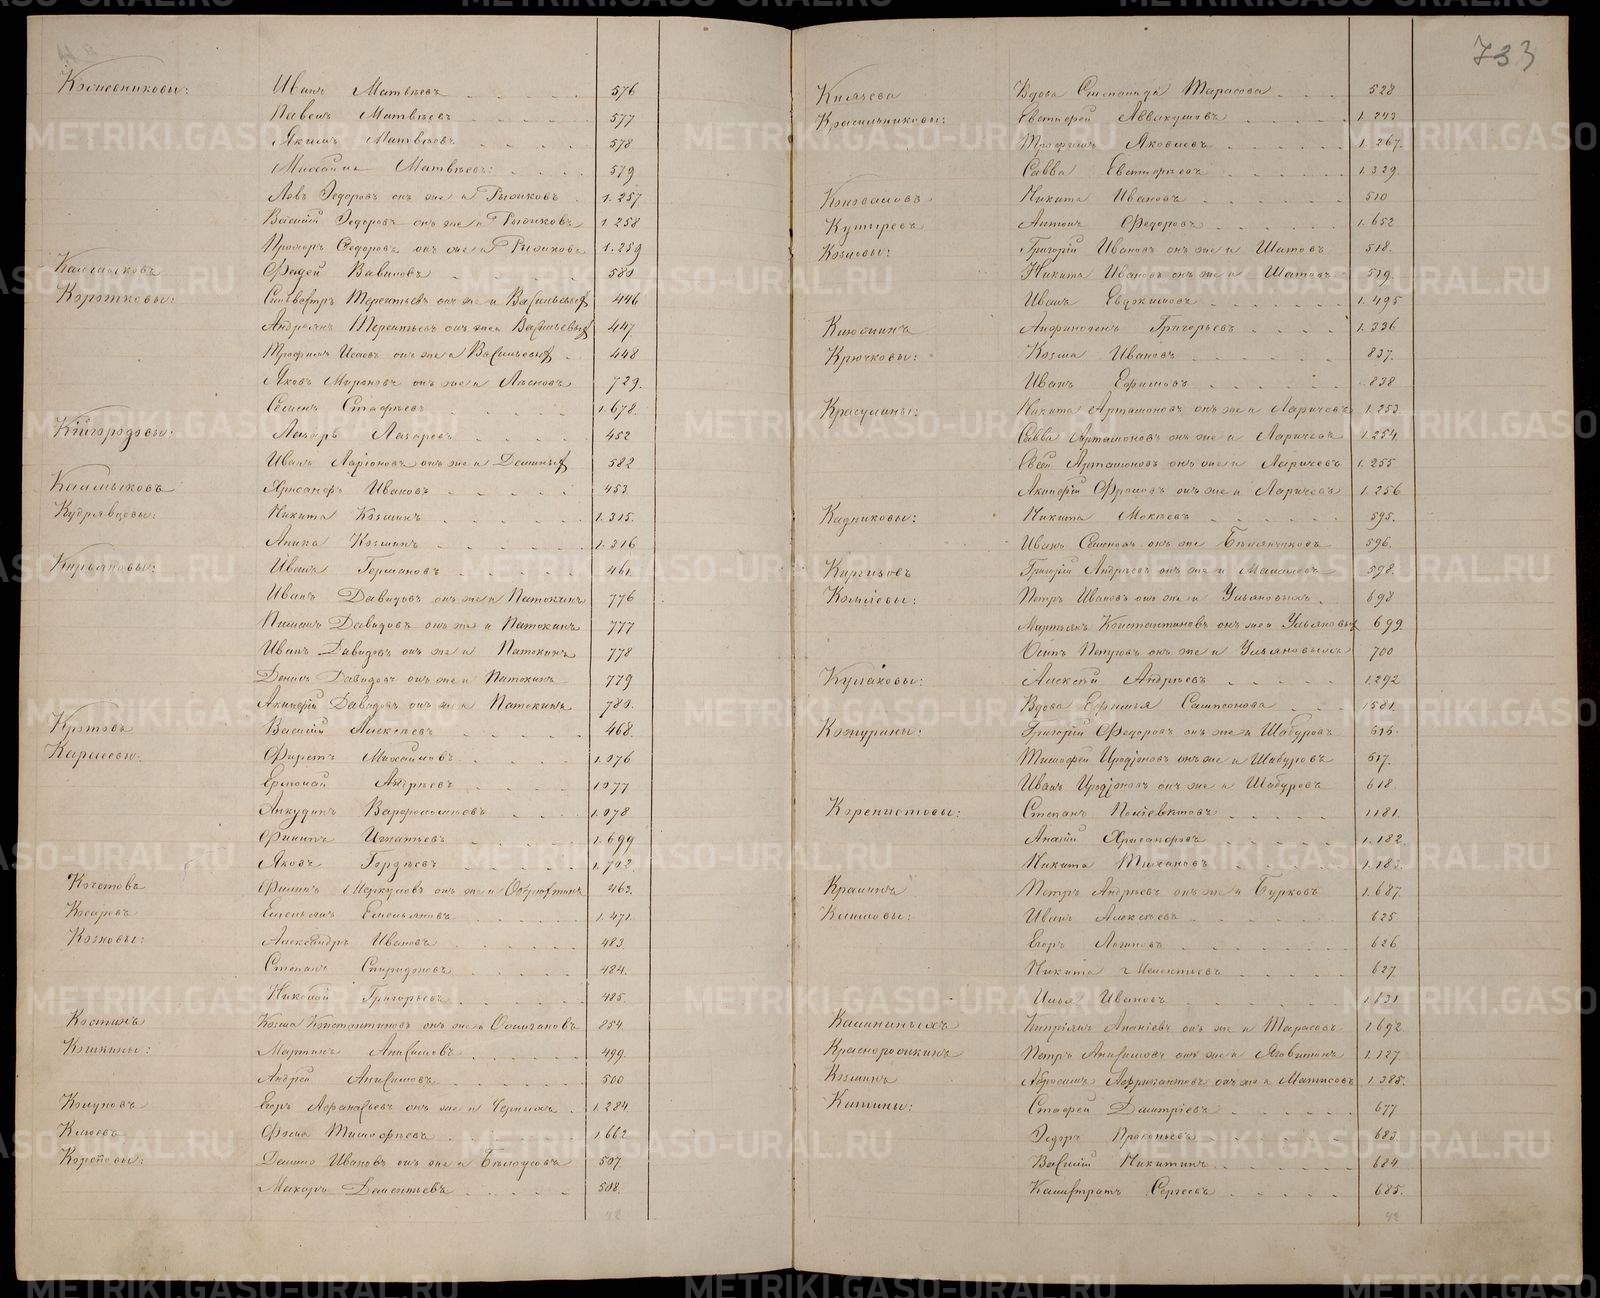 733
Кожевниковы: Иванъ Матвѣевъ 576
Павелъ Матвѣевъ 577
Якимъ Матвѣевъ 578
Михайла Матвѣевъ: 579
Левъ Федоровъ онъ же и Рыжиковъ 1.257
Василій Федоровъ онъ же и Рыжиковъ 1.258
Прохоръ Федоровъ онъ же и Рыжиковъ 1.259
Фадей Вавиловъ 580
Коротковы: Сильвестръ Терентьевъ онъ же и Васильевыхъ 446
Андреянъ Терентьевъ онъ же и Васильевыхъ 447
Трофимъ Исаевъ онъ же и Васильевыхъ 448
Яковъ Мироновъ онъ же и 729.
Семенъ Стафѣевъ 1.678.
Лазарь Лазаревъ 452
Иванъ Ларіоновъ онъ же и 582
Калмыковъ Хрисанфъ Ивановъ 453
Кудрявцевы: Никита Козминъ 1.315.
Аника Козминъ 1.316
Кирьяновы: Иванъ Германовъ 461.
Иванъ Давидовъ онъ же и Патокинъ 776
Давидовъ онъ же и Патокинъ 777
Иванъ Давидовъ онъ же и Патокинъ 778
Денисъ Давидовъ онъ же и Патокинъ 779
Акинфій Давидовъ онъ же и Патокинъ 780.
Кротовъ Василій Алексѣевъ 468.
Карасевы. Фирсъ Михайловъ 1.076
Ермолай Андреевъ 1077
Анкудинъ Варфоломѣевъ 1.078
Филипъ Игнатьевъ 1.699
Яковъ Гордѣевъ 1.702.
Кочетовъ Филипъ Меркуловъ онъ же и 463.
Косаревъ Емельянъ Емельяновъ 1.471.
Козловы: Александръ Ивановъ 483.
Степанъ Спиридоновъ 484.
Николай Григорьевъ 485.
Костинъ Козма Константиновъ онъ же и 854.
Кошкины: Мартинъ Анисимовъ 499.
Андрей Анисимовъ 500
Колуновъ Егоръ Афанасьевъ онъ же и Черныхъ 1.284.
Клюевъ Фома Тимофѣевъ 1.662
Ивановъ онъ же и Бѣлоусовъ 507.
Макаръ Дементьевъ 508.
Вдова Степанида Тарасова 528
Красильниковы: Евстафей Аввакумовъ 1.243
Трофимъ Яковлевъ 1.267.
Савва Евстафьевъ 1.329.
Коноваловъ Никита Ивановъ 510
Кутыревъ Антонъ Федоровъ 1.652
Козловы: Григорій Ивановъ онъ же и Шатовъ 518.
Никита Ивановъ онъ же и Шатовъ 519.
Иванъ Евдокимовъ 1.495
Клюшинъ Анфиногенъ Григорьевъ 1.336
Крючковы: Козма Ивановъ 837.
Иванъ Ефимовъ 838
Красулины: Никита Артамоновъ онъ же и Ларичевъ 1.253.
Савва Артамоновъ онъ же и Ларичевъ 1.254.
Артамоновъ онъ же и Ларичевъ 1.255
Акинфій Фроловъ онъ же и Ларичевъ 1.256
Кадниковы: Никита Мокѣевъ 595.
Иванъ Семеновъ онъ же 596.
Киргизовъ Григорій Андрѣевъ онъ же и 598.
Петръ Ивановъ онъ же и Ульяновыхъ 698
Мартьянъ Константиновъ онъ же и Ульяновыхъ 699
Осипъ Петровъ онъ же и Ульяновыхъ 700
Кулаковы: Алексѣй Андрѣевъ 1.292
Вдова Ефимья Сампсонова 1581.
Кожурины: Григорій Федоровъ онъ же и Шабуровъ 616.
Тимофей Иродіоновъ онъ же и Шабуровъ 617.
Иванъ Иродіоновъ онъ же и Шабуровъ 618.
Коренистовы: Степанъ Поліевктовъ 1181.
Хрисанфовъ 1.182.
Никита Тихановъ 1.183.
Крапинъ Петръ Андрѣевъ онъ же и Бурковъ 1.687.
Иванъ Алексѣевъ 625.
Егоръ Логиновъ 626
Никита 627
Илья Ивановъ 1.131
Калининыхъ Кипріянъ Ананіевъ онъ же и Тарасовъ 1.692.
Петръ Анисимовъ онъ же и 1.127
Козминъ Абросимъ Африкантовъ онъ же и 1.385.
Стафей Дмитріевъ 677
Федоръ Прокопьевъ 683.
Василій Никитинъ 684
Калистратъ Сергѣевъ 685.